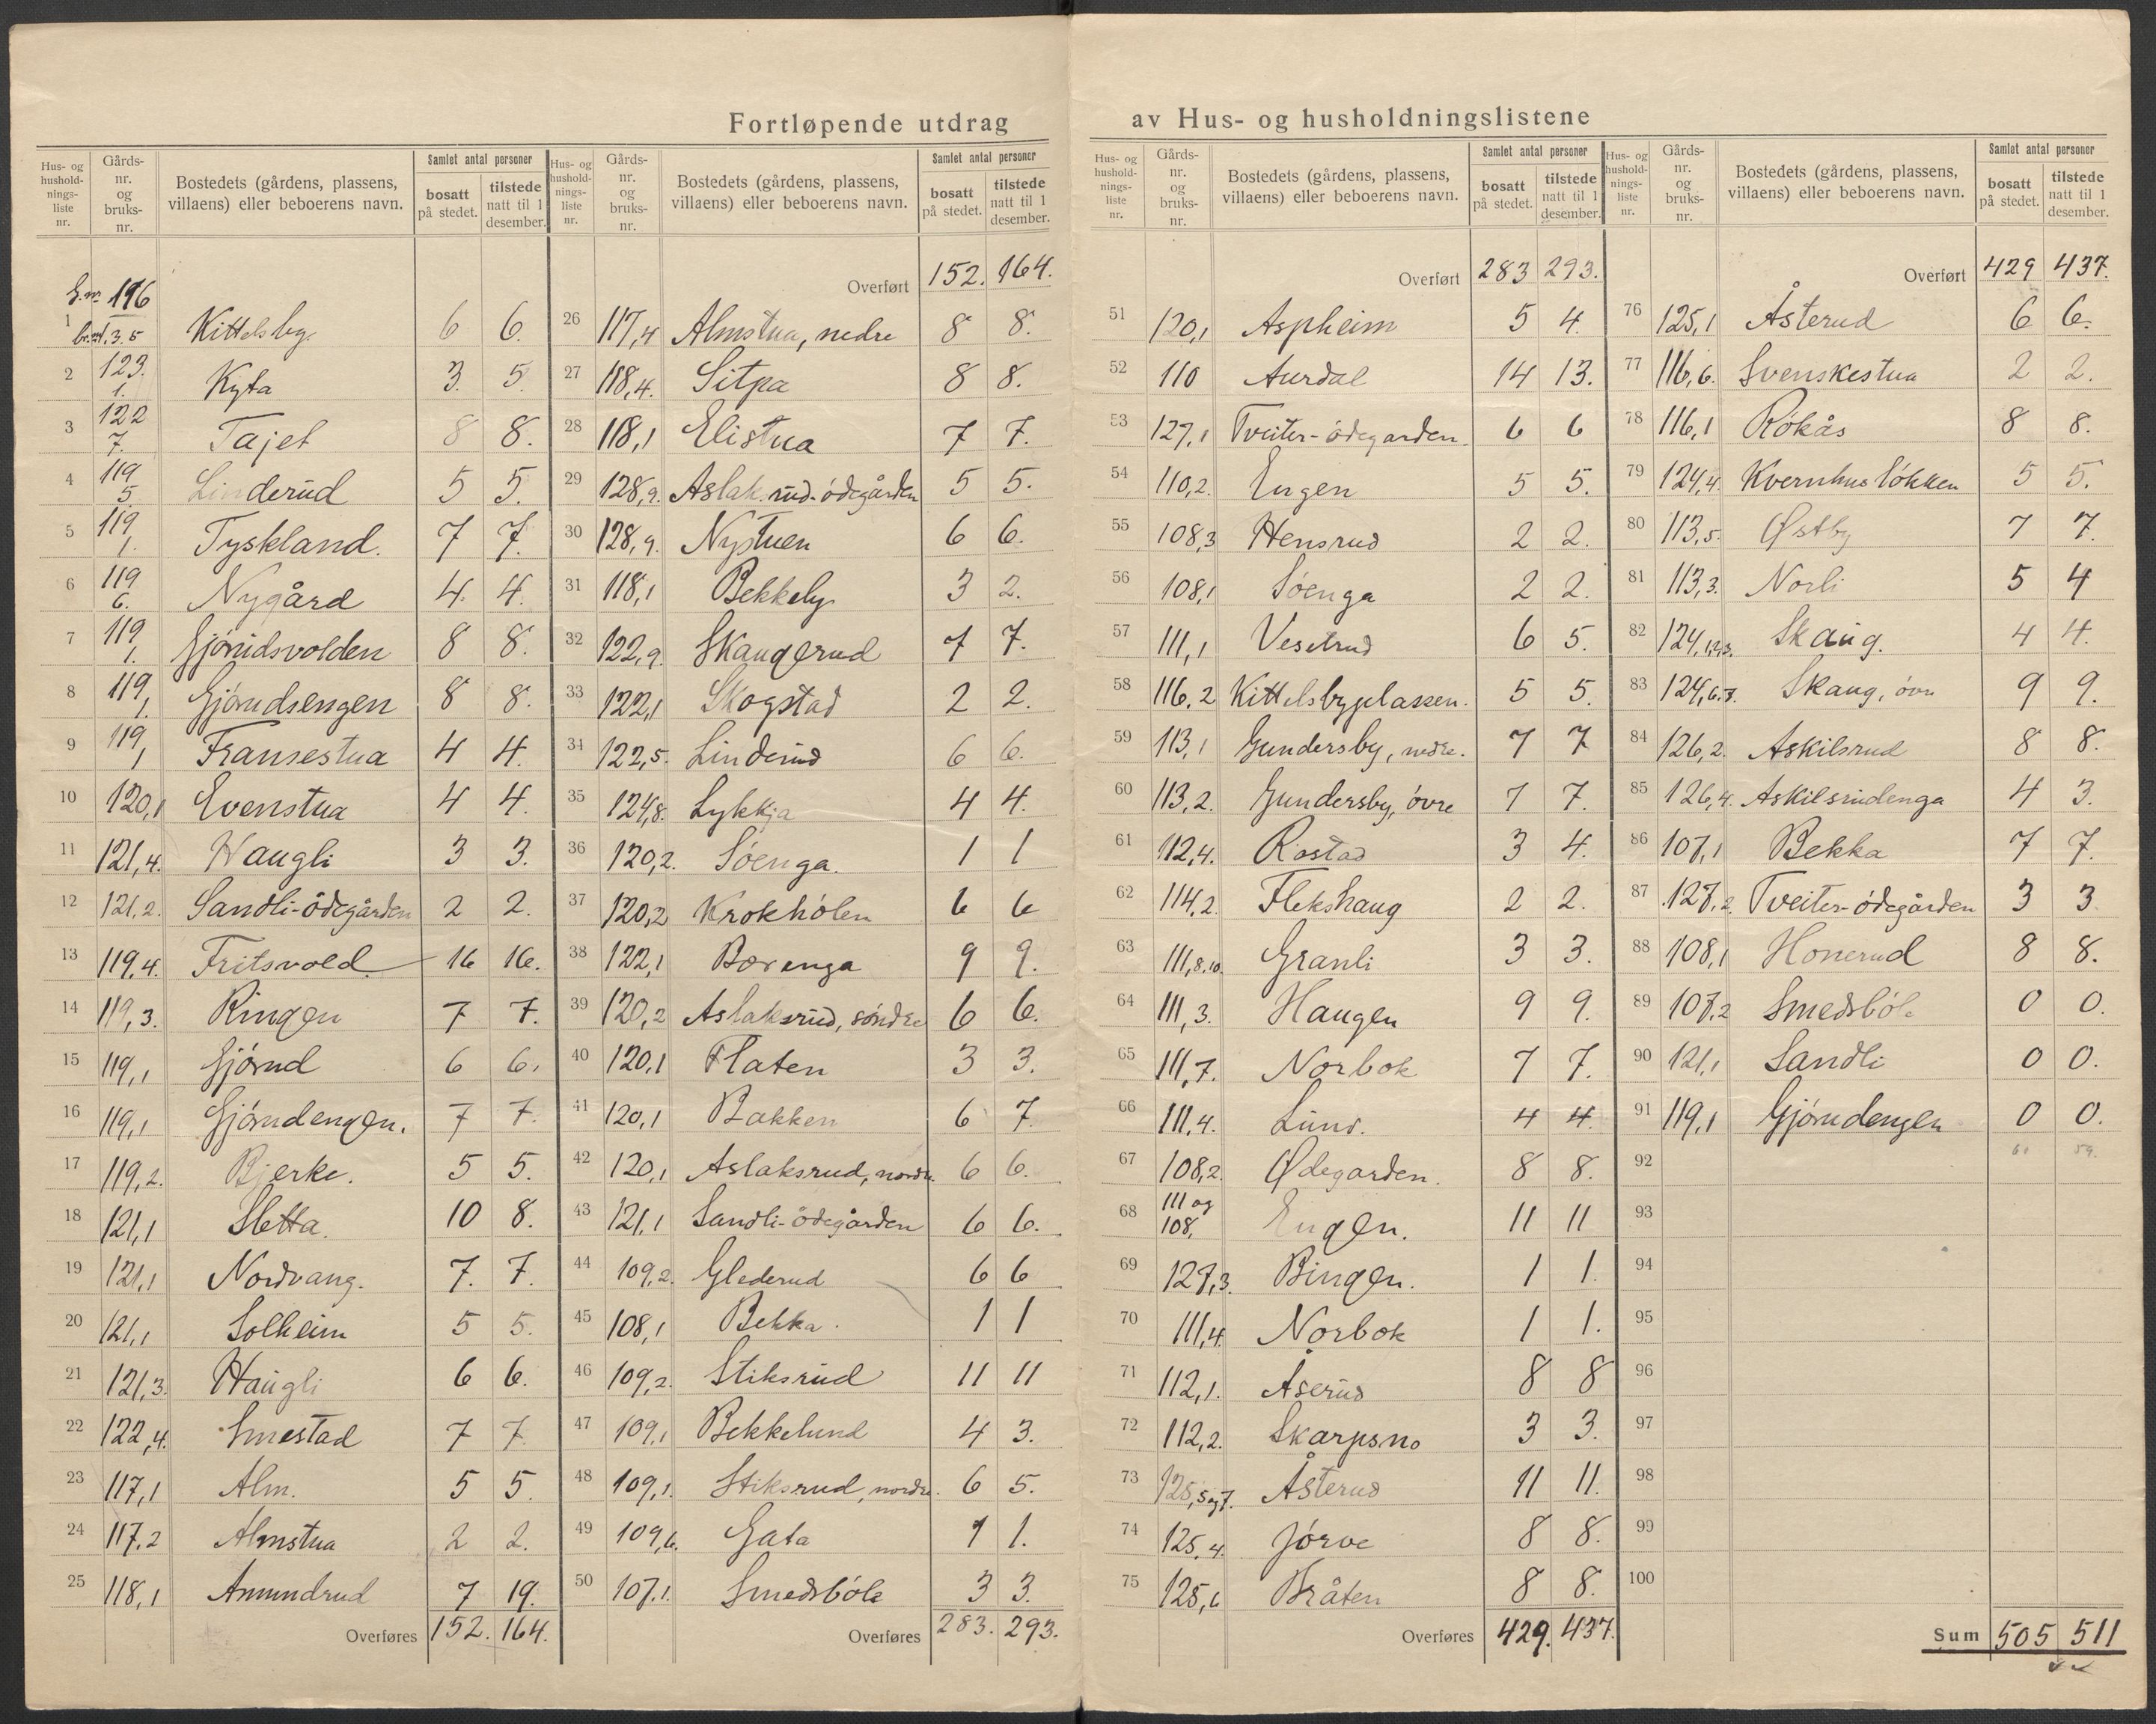 Fortløpende utdrag av Hus- og husholdningslistene
Hus- og husholdnings-liste nr. | Gårds-nr. og bruks-nr. | Bostedets (gårdens, plassens, villaens) eller beboerens navn. | Samlet antal personer | bosatt på stedet. | tilstede natt til 1 desember.
G.nr. 116
1 br.nr 1.3.5 Kittelsby. 6 6.
2 123. 1. Kyta 3. 5.
3 122 7. Tajet 8 8.
4 119 5 Linderud 5 5.
5 119 1. Tyskland. 7 7.
6 119 6. Nygård 4. 4.
7 119 1. Gjørudsvolden 8 8.
8 119, 1. Gjørudsengen 8 8.
9 119, 1 Fransestua 4 4.
10 120,1 Evenstua 4 4.
11 121,4. Haugli 3 3.
12 121,2. Sandli-ødegården 2 2.
13 119,4. Fritsvold. 16 16.
14 119,3. Ringen 7 7.
15 119,1 Gjørud 6 6.
16 119,1 Gjørudengen. 7 7.
17 119,2. Bjerke. 5 5.
18 121,1 Sletta. 10 8.
19 121,1 Nordvang. 7. 7.
20 121,1 Solheim 5 5.
21 121,3. Haugli 6 6.
22 122,4. Smestad 7 7.
23 117,1 Alm. 5 5.
24 117,2 Almstua 2 2.
25 118,1 Amundrud 7 19.
Overføres 152. 164.
Overført 152. 164.
26 117,4 Almstua, nedre 8 8.
27 118,4. Sitpa 8 8.
28 118,1 Elistua 7 7.
29 128,9. Aslaksrud-ødegården 5 5.
30 128,9. Nystuen 6 6.
31 118,1 Bekkely 3 2.
32 122,9. Skaugerud 7 7.
33 122,1 Skogstad 2 2.
34 122,5. Linderud 6 6.
35 124,8. Lykkja 4 4.
36 120,2. Søenga. 1 1
37 120,2 Krokhølen 6 6
38 122,1 Borenga 9 9.
39 120,2 Aslaksrud, søndre 6 6.
40 120,1 Flaten 3 3.
41 120,1 Bakken 6 7.
42 120,1 Aslaksrud, nordre. 6 6.
43 121,1 Sandli-ødegården 6 6.
44 109,2. Glederud 6 6
45 108,1 Bekka. 1 1
46 109,2. Stiksrud 11 11
47 109,1 Bekkelund 4 3.
48 109,1. Stiksrud, nordre. 6 5.
49 109,6. Gata 1 1.
50 107,1. Smedsbøle 3 3.
Overføres 283. 293.
Overført 283 293.
51 120,1 Aspheim 5 4.
52 110 Aurdal 14 13.
53 127,1 Tveiter-ødegarden. 6 6
54 110,2. Engen 5 5.
55 108,3 Hensrud 2 2.
56 108,1 Søenga 2 2.
57 111,1 Vesetrud 6 5.
58 116,2 Kittelsbyplassen. 5 5.
59 113,1 Gundersby, nedre. 7 7
60 113,2. Gundersby, øvre 7 7.
61 112,4. Rostad 3 4.
62 114,2. Flekshaug 2 2.
63 111,8.10. Granli 3 3.
64 111,3. Haugen 9 9.
65 111,7. Norbok 7 7.
66 111,4. Lund. 4 4.
67 108,2. Ødegarden. 8 8.
68 111 og 108, Engen. 11 11
69 127,3. Bingen. 1 1.
70 111,4. Norbok 1 1.
71 112,1. Åserud 8 8
72 112,2. Skarpsno 3 3.
73 125,5 og 7. Åsterud 11 11.
74 125,4. Jørve 8 8.
75 125,6 Bråten 8 8.
Overføres 429. 437.
Overført 429 437.
76 125,1 Åsterud 6 6.
77 116,6. Svenskestua 2 2.
78 116,1 Røkås 8 8.
79 124,4. Kvernhusløkken 5 5.
80 113,5. Østby 7 7.
81 113,3. Norli 5 4
82 124,1,2,3. Skaug. 4 4.
83 124,6.7. Skaug, øvre 9 9.
84 126,2. Askilsrud 8 8.
85 126,4. Askilsrudenga 4 3.
86 107,1 Bekka 7 7.
87 127,2. Tveiter-ødegården 3 3
88 108,1 Honerud 8 8.
89 107,2 Smedsbøle 0 0.
90 121,1 Sandli 0 0.
91 119,1 Gjørudengen 0 0.
92
93
94
95
96
97
98
99
100
Sum 505 511